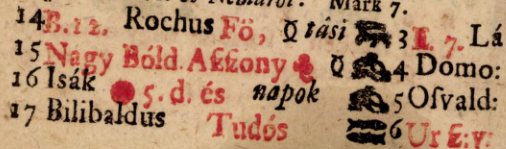 Mark 7.
14 B. 12. Rochus Fö, ☿ tási 3 E. 7. Lá
15 Nagy Bóld. Aſſzony ☿ 4 Domo:
16 Isák 5. d. és napok 5 Oſvald:
17 Bilibaldus Tudós 6 Ur